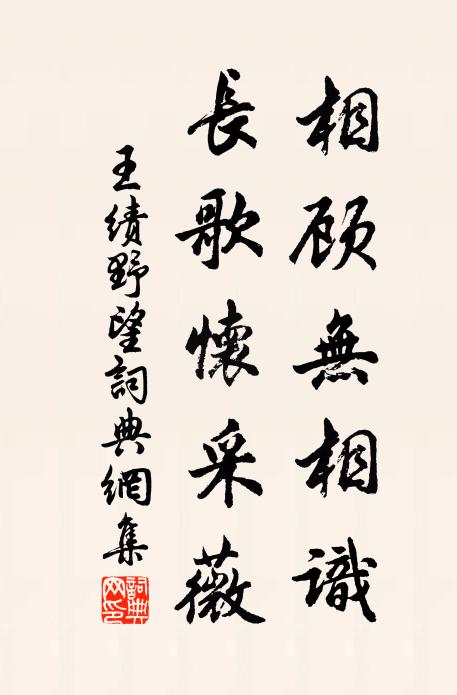 相顾無相識
長歌懷采薇
王績野望詞典網集
詞典網印